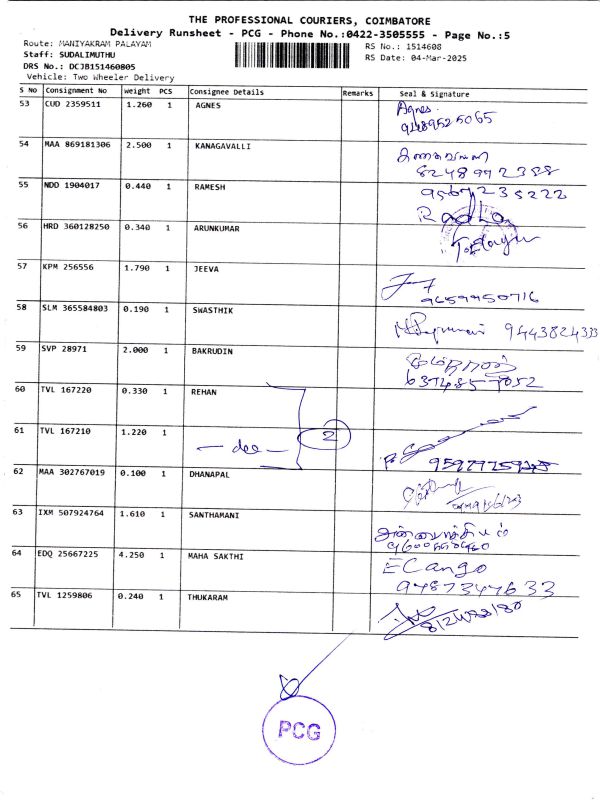 THE PROFESSIONAL COURIERS, COIMBATORE
Delivery Runsheet - PCG - Phone No.:0422-3505555 - Page No.:5
Route: MANIYAKRAM PALAYAM
RS No.: 1514608
Staff: SUDALIMUTHU
RS Date: 04-Mar-2025
DRS No.: DCJB151460805
Vehicle: Two Wheeler Delivery
S No Consignment No Weight PCS Consignee Details Remarks Seal & Signature
53 CUD 2359511 1.260 1 AGNES Agnes
9489525065
54 MAA 869181306 2.500 1 KANAGAVALLI
8248992358
55 NDD 1904017 0.440 1 RAMESH 9567235222
Radha
56 HRD 360128250 0.340 1 ARUNKUMAR
57 KPM 256556 1.790 1 JEEVA
9659950716
58 SLM 365584803 0.190 1 SWASTHIK 9443824333
59 SVP 28971 2.000 1 BAKRUDIN
6374857052
60 TVL 167220 0.330 1 REHAN
61 TVL 167210 1.220 1 — do — 2
62 MAA 302767019 0.100 1 DHANAPAL
63 IXM 507924764 1.610 1 SANTHAMANI
64 EDQ 25667225 4.250 1 MAHA SAKTHI ECango
9487347633
65 TVL 1259806 0.240 1 THUKARAM
PCG